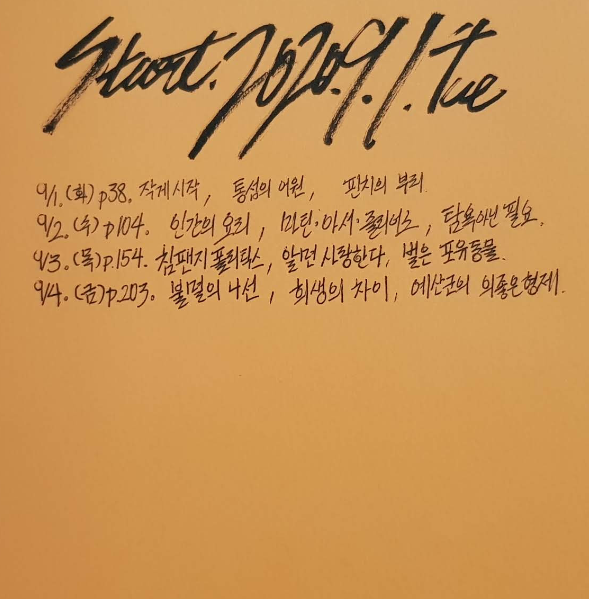 Start. 2020. 9. 1. Tue
9/1. (화) p38. 작게 시작, 통섭의 어원, 핀치의 부리.
9/2. (수) p104. 인간의 오리, 마틴·아서·졸리어즈, 탐욕아닌 필요.
9/3. (목) p.154. 침팬지 폴리틱스, 알면 사랑한다, 벌은 포유동물.
9/4. (금) p.203. 불멸의 나선, 희생의 차이, 예산군의 의좋은 형제.